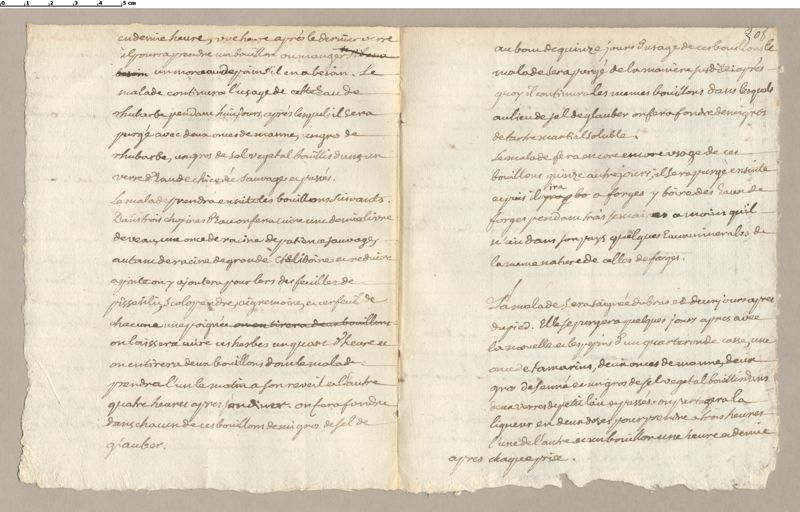 0 1 2 3 4 5 cm
en demie heure, une heure après le dernier verre
il pourra prendre un bouillon ou manger
un morceau de pain s'il en a besoin. Le
malade continuera l'usage de cette Eau de
rhubarbe pendant huit jours, après lesquels il sera
purgé avec deux onces de manne, un gros de
rhubarbe, un gros de sel vegetal bouillis dans un
verre d'Eau de chicorée sauvage et passés.
Le malade prendra ensuite les bouillons suivants.
Dans trois chopines d'eau on fera cuire une demie livre
de veau, une once de racine de patience sauvage,
autant de racine de grande chelidoine, et reduire
a pinte on y ajoutera pour lors des feuilles de
pissenlit, scolopendre, aigremoine, et cerfeuil de
chacune une poignée on en tirera deux bouillons
on laissera cuire ces herbes un quart d'heure et
on en tirera deux bouillons dont le malade
prendra l'un le matin a son reveil et l'autre
quatre heures apres son diner. on fera fondre
dans chacun de ces bouillons demi gros de sel de
glauber.
308
au bout de quinze jours d'usage de ces bouillons le
malade sera purgé de la maniere susdite après
quoy il continuera les memes bouillons dans lesquels
au lieu de sel de glauber on fera fondre demi gros
de tartre martial soluble.
Le malade fera encore usage de ces
bouillons quinze autre jours, il sera purgé ensuite
et puis il ira a forges y boire des Eaux de
forges pendant trois semaines a moins qu'il
n'ait dans son pays quelques Eaux minerales de
la meme nature de celles de forges.
La malade sera saignée du bras et deux jours apres
du pied. Elle se purgera quelques jours apres avec
la moëlle et les pepins d'un quarteron de casse, une
once de tamarins, deux onces de manne, deux
gros de senné et un gros de sel vegetal bouillis dans
deux verres de petit lait et passés. on partagera la
liqueur en deux doses pour prendre a trois heures
l'une de l'autre et un bouillon une heure et demie
apres chaque prise.